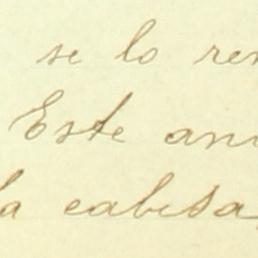 se lo re
Este ani
la cabesa,